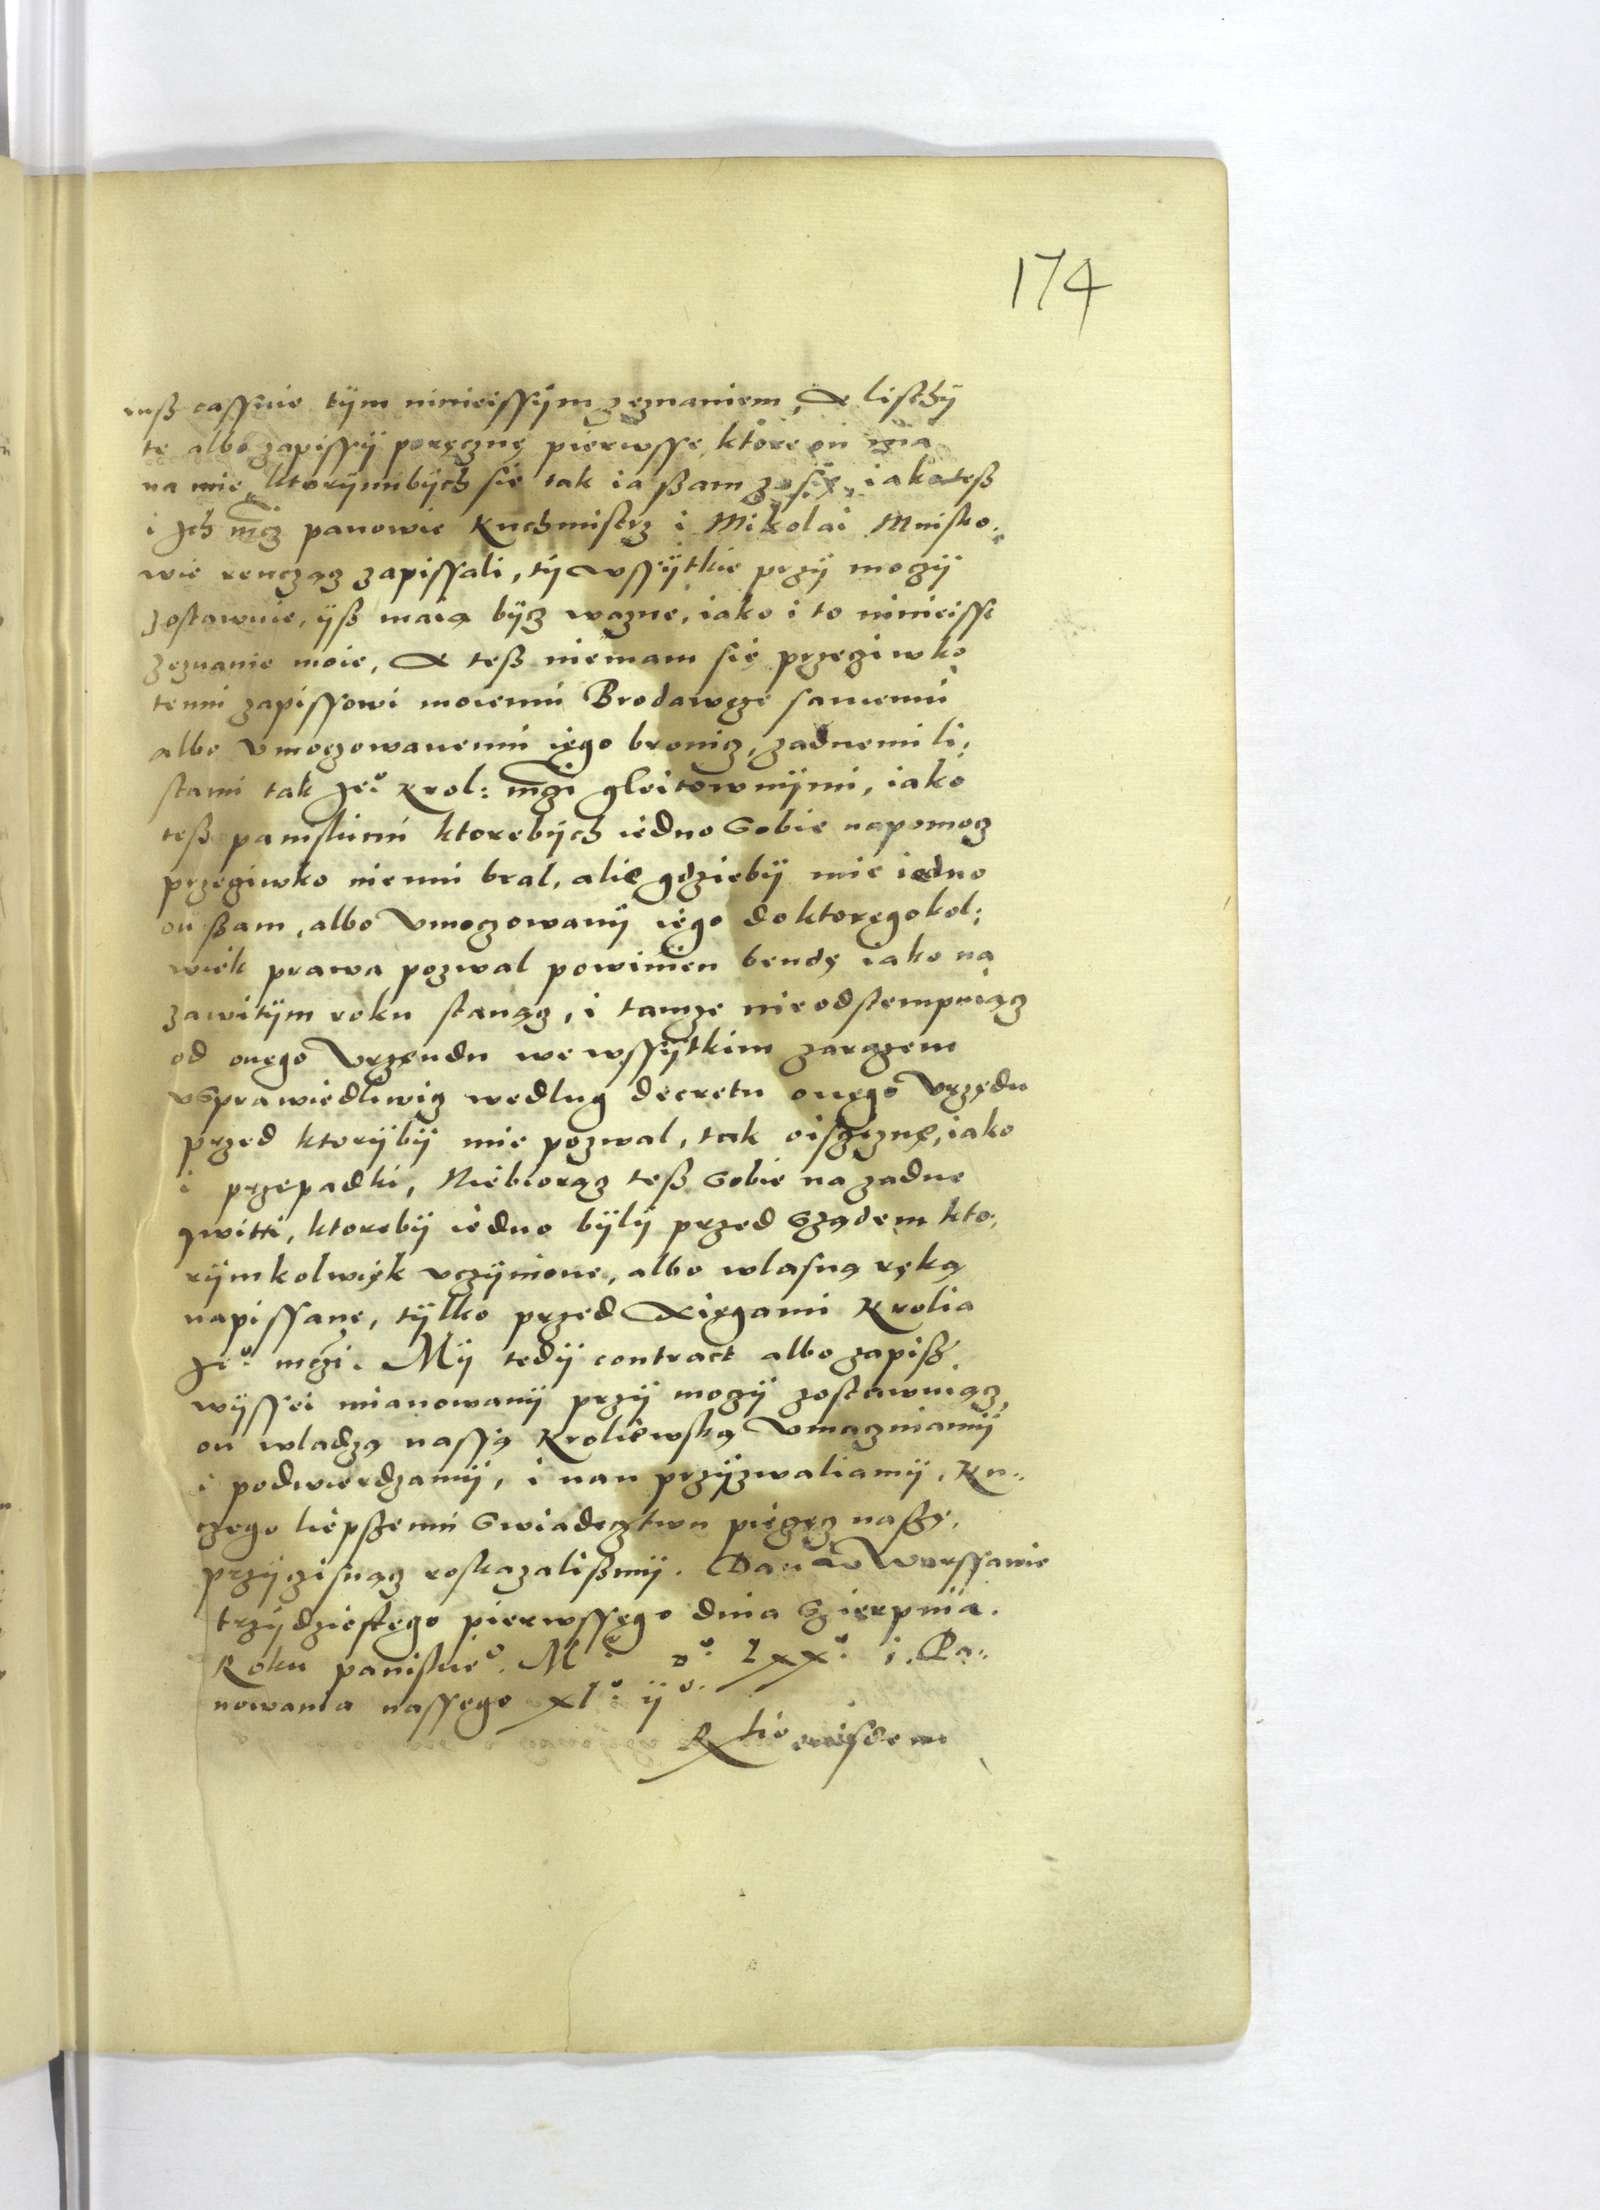 174
nuß cassuie tÿm ninieissÿm zeznaniem, A listhÿ
te albo zapissÿ poręcznę pierwsse, ktore on ma
na mie, ktorÿmibÿch się tak ia ßam za się, iako teß
i Ich mcz panowie Kuchmistrz i Mikolai Mnisko,
wie ręncząz zapissali, tÿ wssÿtkie przÿ moczÿ
zostawuie, ÿß maią bÿcz wazne, iako i to ninieisse
zeznanie moie, A teß niemam się przeciwko
temu zapissowi moiemu Brodawcze samemu
albo vmoczowanemu iego bronicz, zadnemi li,
stami tak Jeº Krol: mczi gleitownÿmi, iako
teß panskimi ktorebÿch iedno Sobie napomocz
przeciwko niemu bral, alie gdziebÿ mie iedno
on ßam, albo vmoczowanÿ iego do ktoregokol,
wiek prawa pozwal powinien bende iako na
zawitÿm roku stanącz, i tamze nieodstempuiącz
od onego Vrzendu we wssÿtkim zarazem
vsprawiedliwicz wedlug decretu onego Vrzędu
przed ktorÿbÿ mie pozwal, tak oisczizne, iako
i przepadki, Niebiorącz teß Sobie na zadne
qwitti, ktorebÿ iedno bÿlÿ przed Sządem kto,
rÿmkolwiek vczÿnione, albo wlasną ręką
napissane, tÿlko przed Xięgami Krolia
Jeº mczi. Mÿ tedÿ contract albo zapiß
wÿssei mianowanÿ przÿ moczÿ zostawuiącz,
on wladzą nasszą Kroliewską Vmacniamÿ
i podwierdzamÿ, i nan przÿzwaliamÿ, Ku,,
czego liepszemu Swiadecztwu pieczęcz naszę,
przÿczisnącz roskazalißmÿ. Dan w Warssawie
trzÿdziestego pierwssego dnia Szierpnia.
Roku panskieº. Mº Dº Lxxº i Pa,,
nowania nassego xlº ijº.
Rtio eiusdem